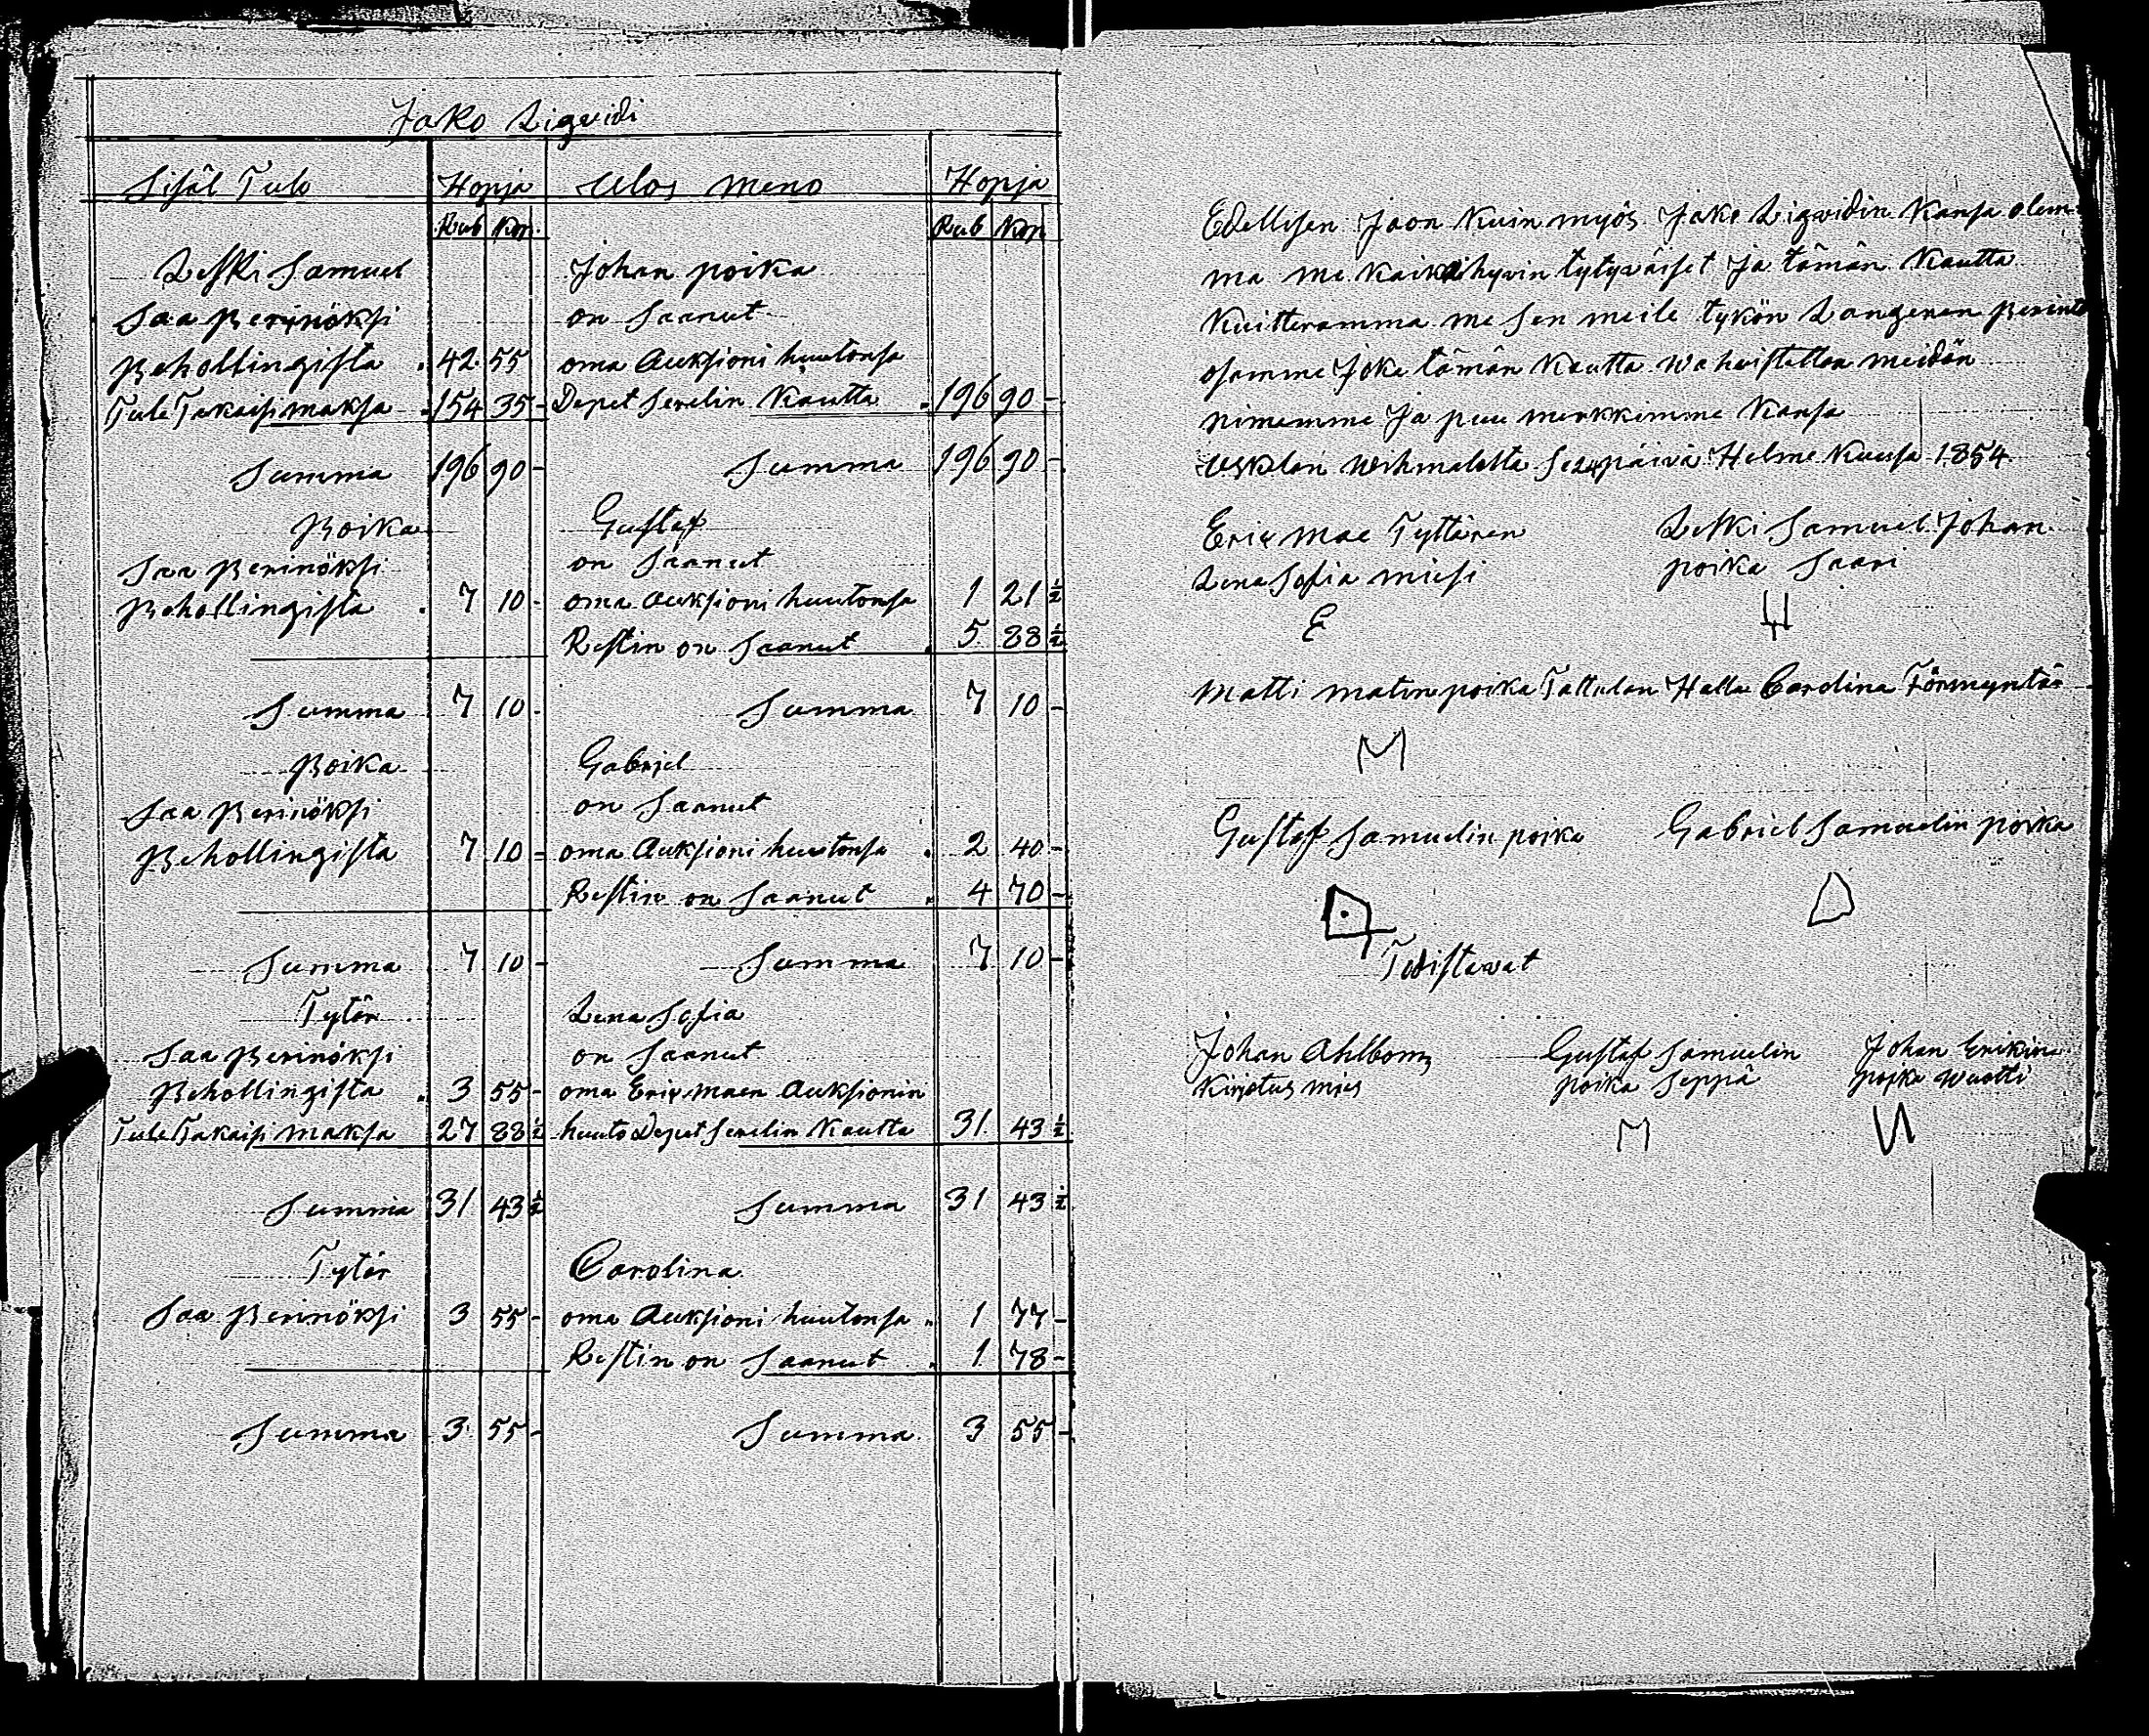 Jako Liqvidi
Sisäl Tulo Hopja Ulos meno Hopja
Rub Kop Rub Kop
Leski Samuel Johan poika
Saa Perinöksi on Saanut
Behollingista 42 55 oma Auksioni huutonsa
Tule Takaisi maksa 154 35 - Depet Serelin Kautta 196 90 -
Summa 196 90 - Summa 196 90 -
Poika Gustaf
Saa Perinöksi on Saanut
Behollingista 7 10 - oma Auksioni huutonsa 1 21 ½
Restin on Saanut 5 88 ½
Summa 7 10 - Summa 7 10 -
Poika Gabriel
Saa Perinöksi on Saanut
Behollingista 7 10 - oma Auksioni huutonsa 2 40 -
Restin on Saanut 4 70 -
Summa 7 10 - Summa 7 10 -
Tytär Lena Sofia
Saa Perinöksi on Saanut
Behollingista 3 55 - oma Eriq maen Auksionin
Tule Takaisi maksa 27 88 ½ huuto Deput Serelin Kautta 31 43 ½
Summa 31 43 ½ Summa 31 43 ½
Tytär Carolina
Saa Perinöksi 3 55 - oma Auksioni huutonsa 1 77 -
Restin on Saanut 1 78 -
Summa 3 55 - Summa 3 55 -
Edellisen Jaon Kuin myös Jako Liqvidin Kansa olem-
ma me Kaikki hyvin tytyväiset Ja tämän Kautta
Kuitteramma me sen meile tykön Langenen Perintö
osamme Joka tämän Kautta wahvistettan meidän
nimemme Ja puu merkkimme Kansa
Uskelan Wihmalotta Se päivä Helme Kuusa 1854
Eriq mae Tyttären Leski Samuel Johan
Lena Sofia miesi poika Saari
E
Matti matinpoika Tattulan Halla Carolina Förmyntär
M
Gustaf Samuelin poika Gabriel Samuelin poika
Todistavat
Johan Ahlbom Gustaf Samuelin Johan Erikin
Kirjotus mies poika Seppä poika Wuotti
M